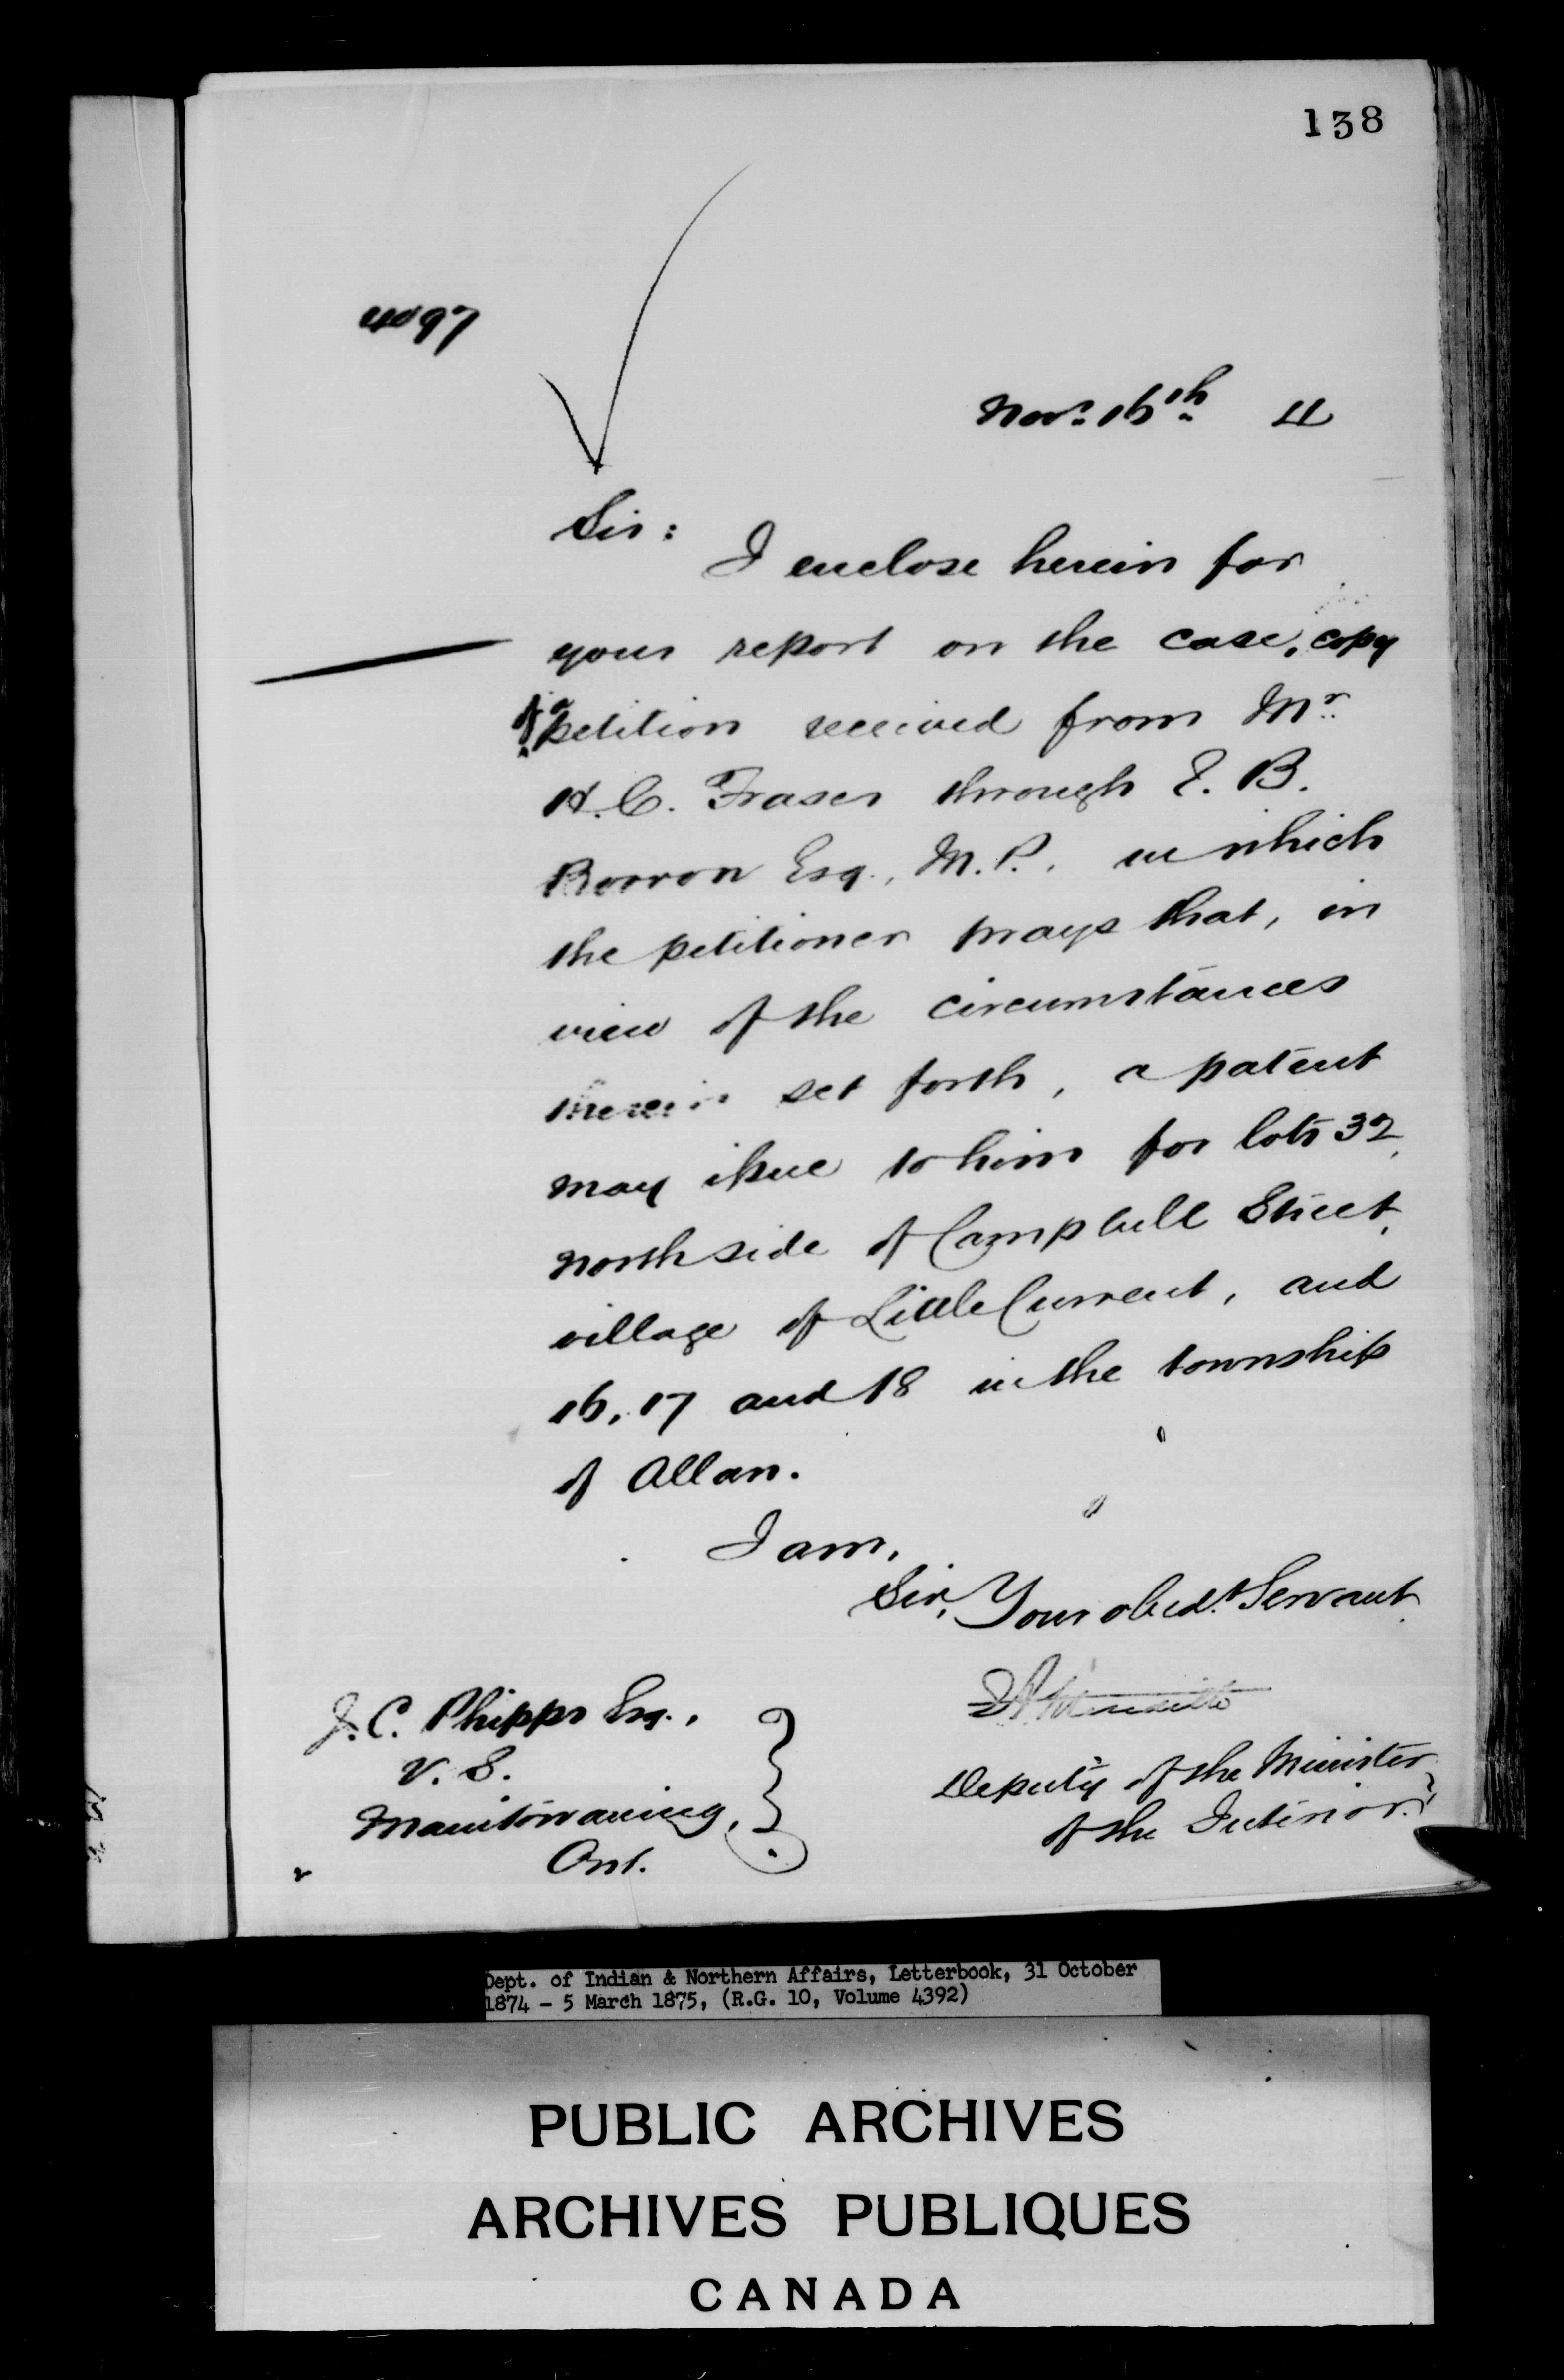 138
4097
Novr. 16th 4
Sir:
I enclose herein for
your report on the case, copy
of a petition received from Mr.
H. C. Fraser through E. B.
Borron Esq., M.P., in which
the petitioner prays that, in
view of the circumstances
therein set forth, a patent
may issue to him for lots 32,
north side of Campbell Street,
village of Little Current, and
16, 17 and 18 in the township
of Allan.
I am,
Sir, Your obedt. Servant
Deputy of the Minister
of the Interior.
J. C. Phipps Esq.,
V. S.
Manitowaning,
Ont.
Dept. of Indian & Northern Affairs, Letterbook, 31 October
1874 - 5 March 1875, (R.G. 10, Volume 4392)
PUBLIC ARCHIVES
ARCHIVES PUBLIQUES
CANADA